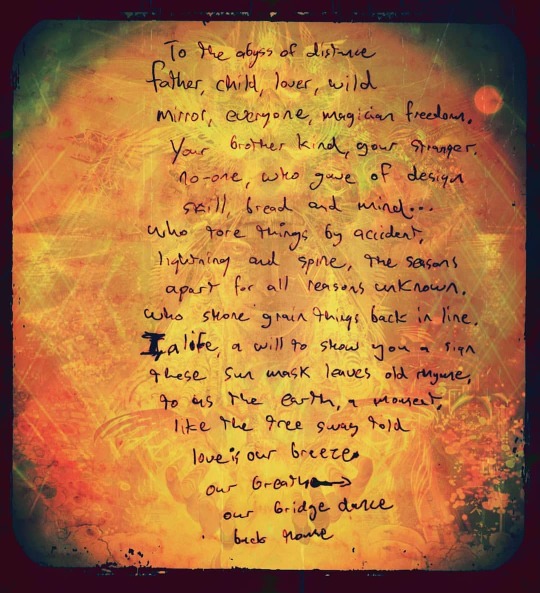 To the abyss of distance
father, child, lover, wild
mirror, everyone, magician freedom.
Your brother kind, your stranger.
no-one, who gave of design
skill, bread and mind...
who tore things by accident,
lightning and spine, the seasons
apart for all reasons unknown.
who stone grain things back in line.
I, a life, a will to show you a sign
these sun mask leaves old rhyme,
to us the earth, a moment,
like the tree sway told
love is our breeze
our breath
our bridge dance
back home